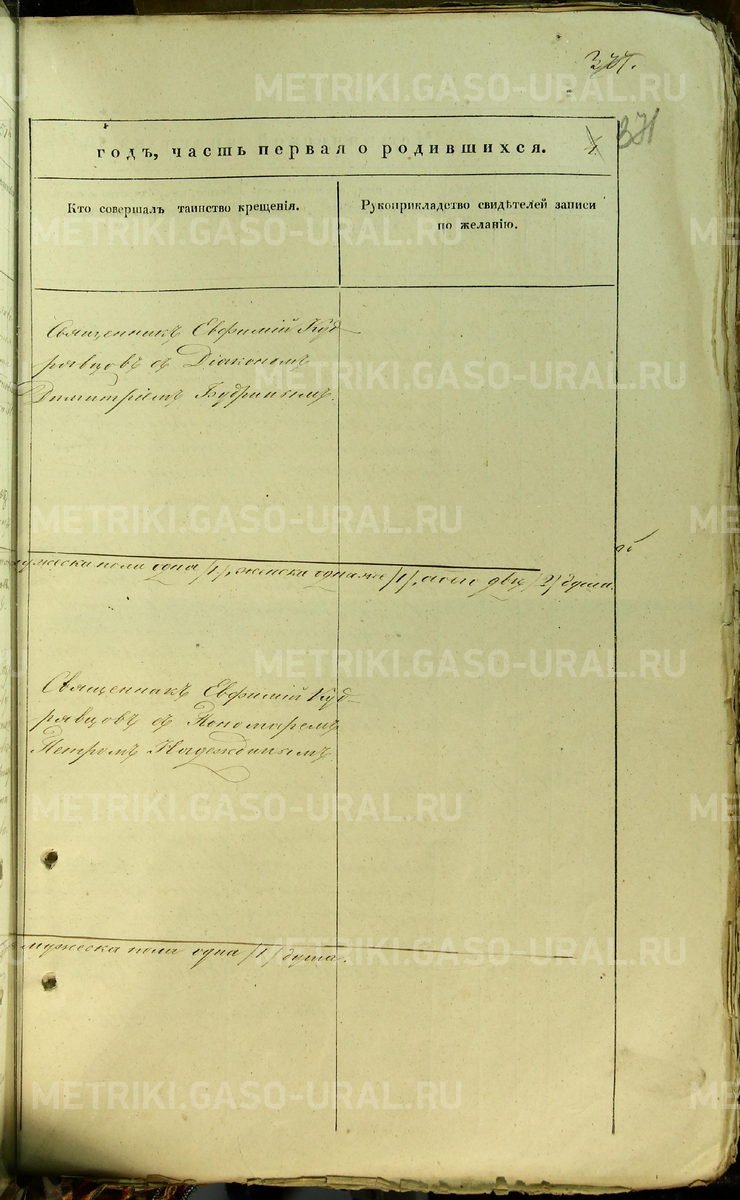 371.
371
годъ, часть первая о родившихся.
Кто совершалъ таинство крещенія.
Рукоприкладство свидѣтелей записи
по желанію.
Священникъ Евфимій Куд-
рявцовъ съ Діакономъ
Димитріемъ Будринымъ.
мужеска пола одна /1/, женска одна же /1/, обоего двѣ /2/ души.
Священникъ Евфимій Куд-
рявцовъ съ Пономаремъ
Петромъ Надеждинымъ.
мужеска пола одна /1/ душа.
METRIKI.GASO-URAL.RU